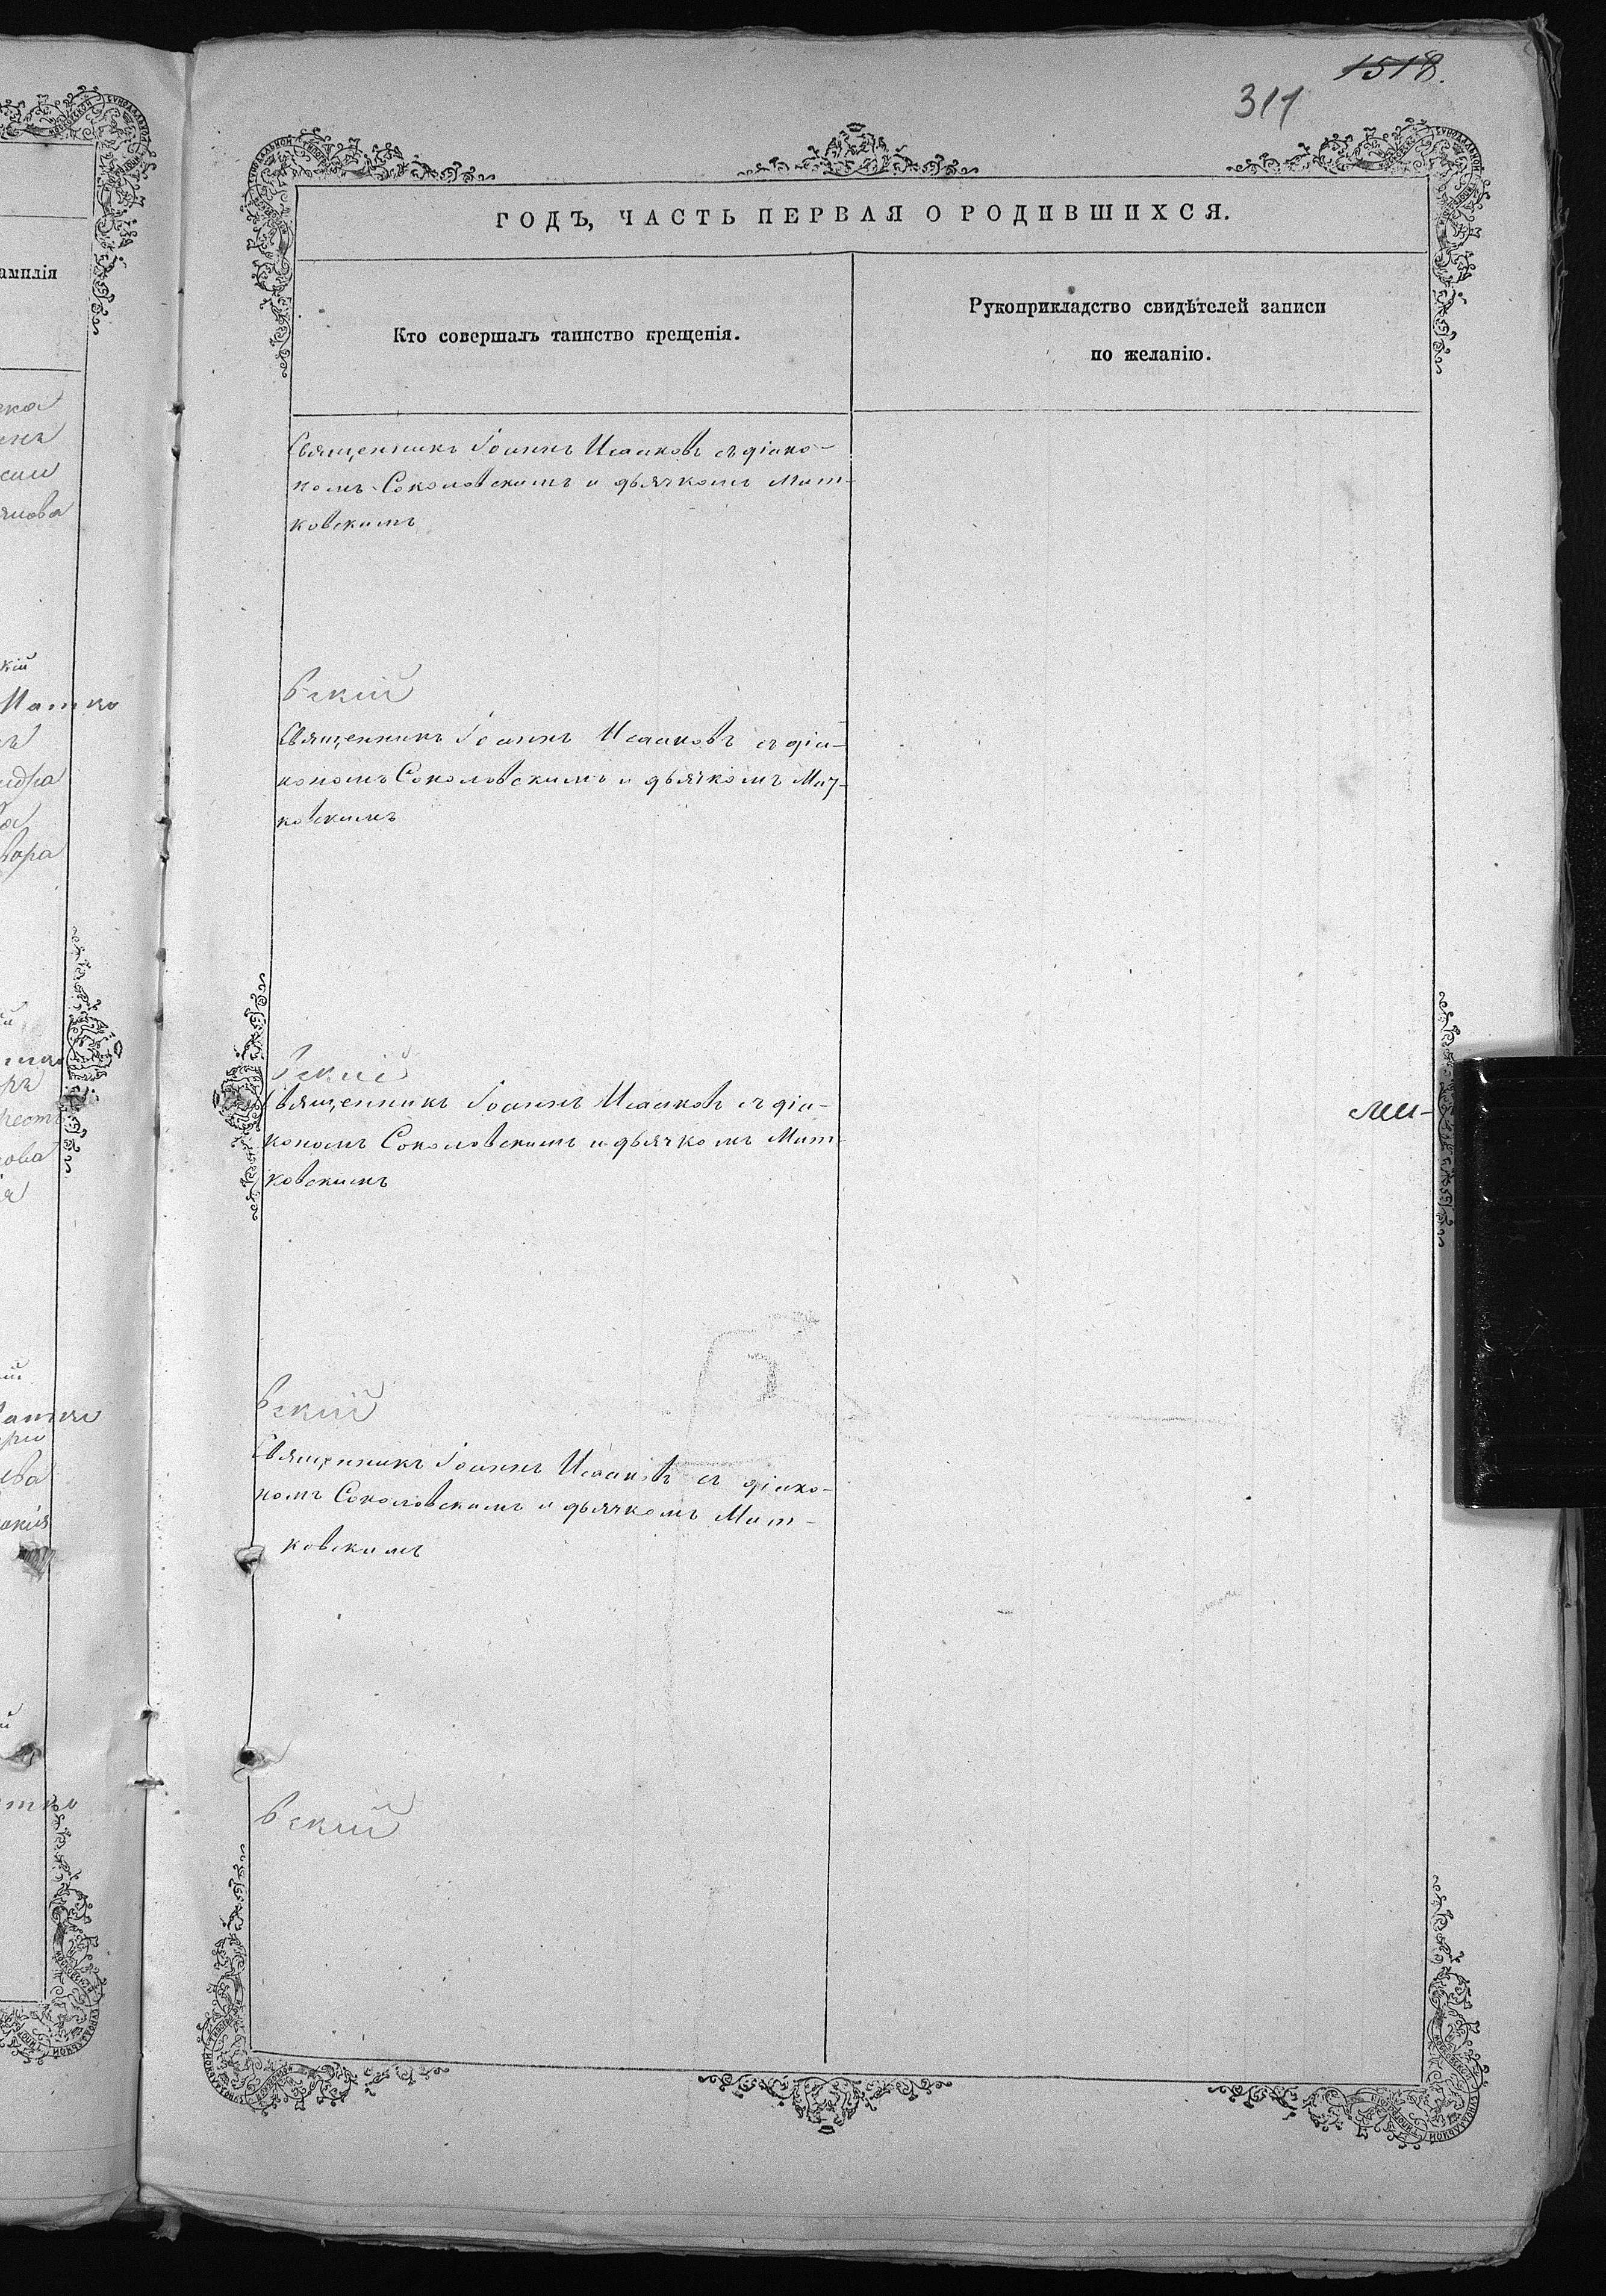 1518.
311
ГОДЪ, ЧАСТЬ ПЕРВАЯ О РОДИВШИХСЯ.
амилія
Кто совершалъ таинство крещенія.
Рукоприкладство свидѣтелей записи
по желанію.
Священникъ Іоаннъ Исааковъ съ діако-
номъ Соколовскимъ и дьячкомъ Мит-
ковскимъ
вскій
Священникъ Іоаннъ Исааковъ съ діа-
кономъ Соколовскимъ и дьячкомъ Мит-
ковскимъ
вскій
Священникъ Іоаннъ Исааковъ съ діа-
кономъ Соколовскимъ и дьячкомъ Мит-
ковскимъ
ми-
вскій
Священникъ Іоаннъ Исааковъ съ діако-
номъ Соколовскимъ и дьячкомъ Мит-
ковскимъ
вскій